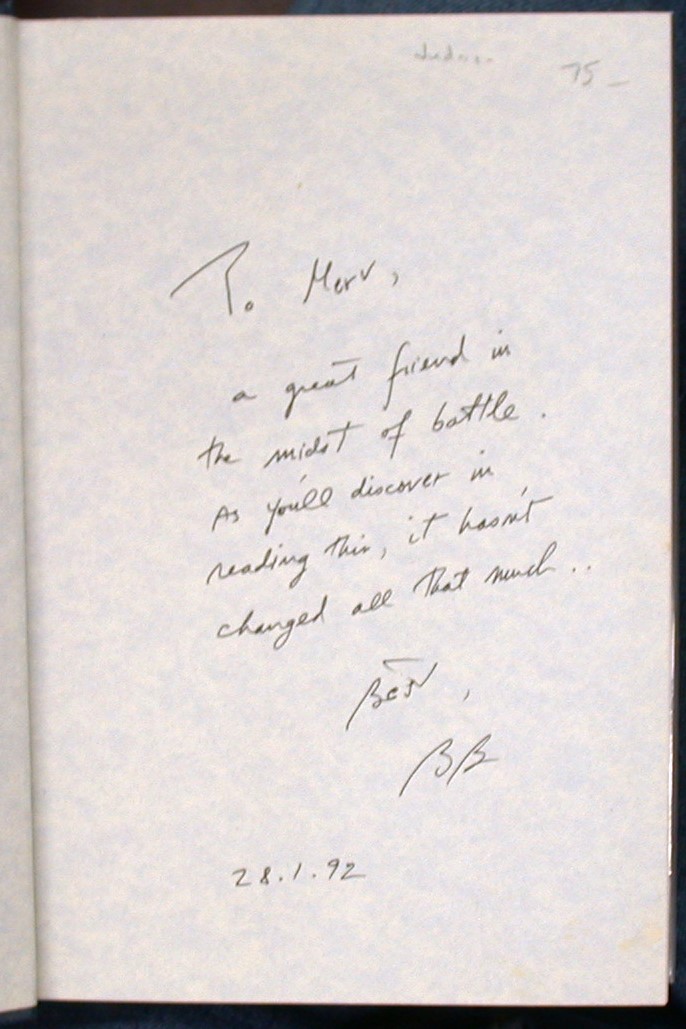 75 –
To Merv,
a great friend in
the midst of battle.
As you'll discover in
reading this, it hasn't
changed all that much..
Best,
BB
28.1.92